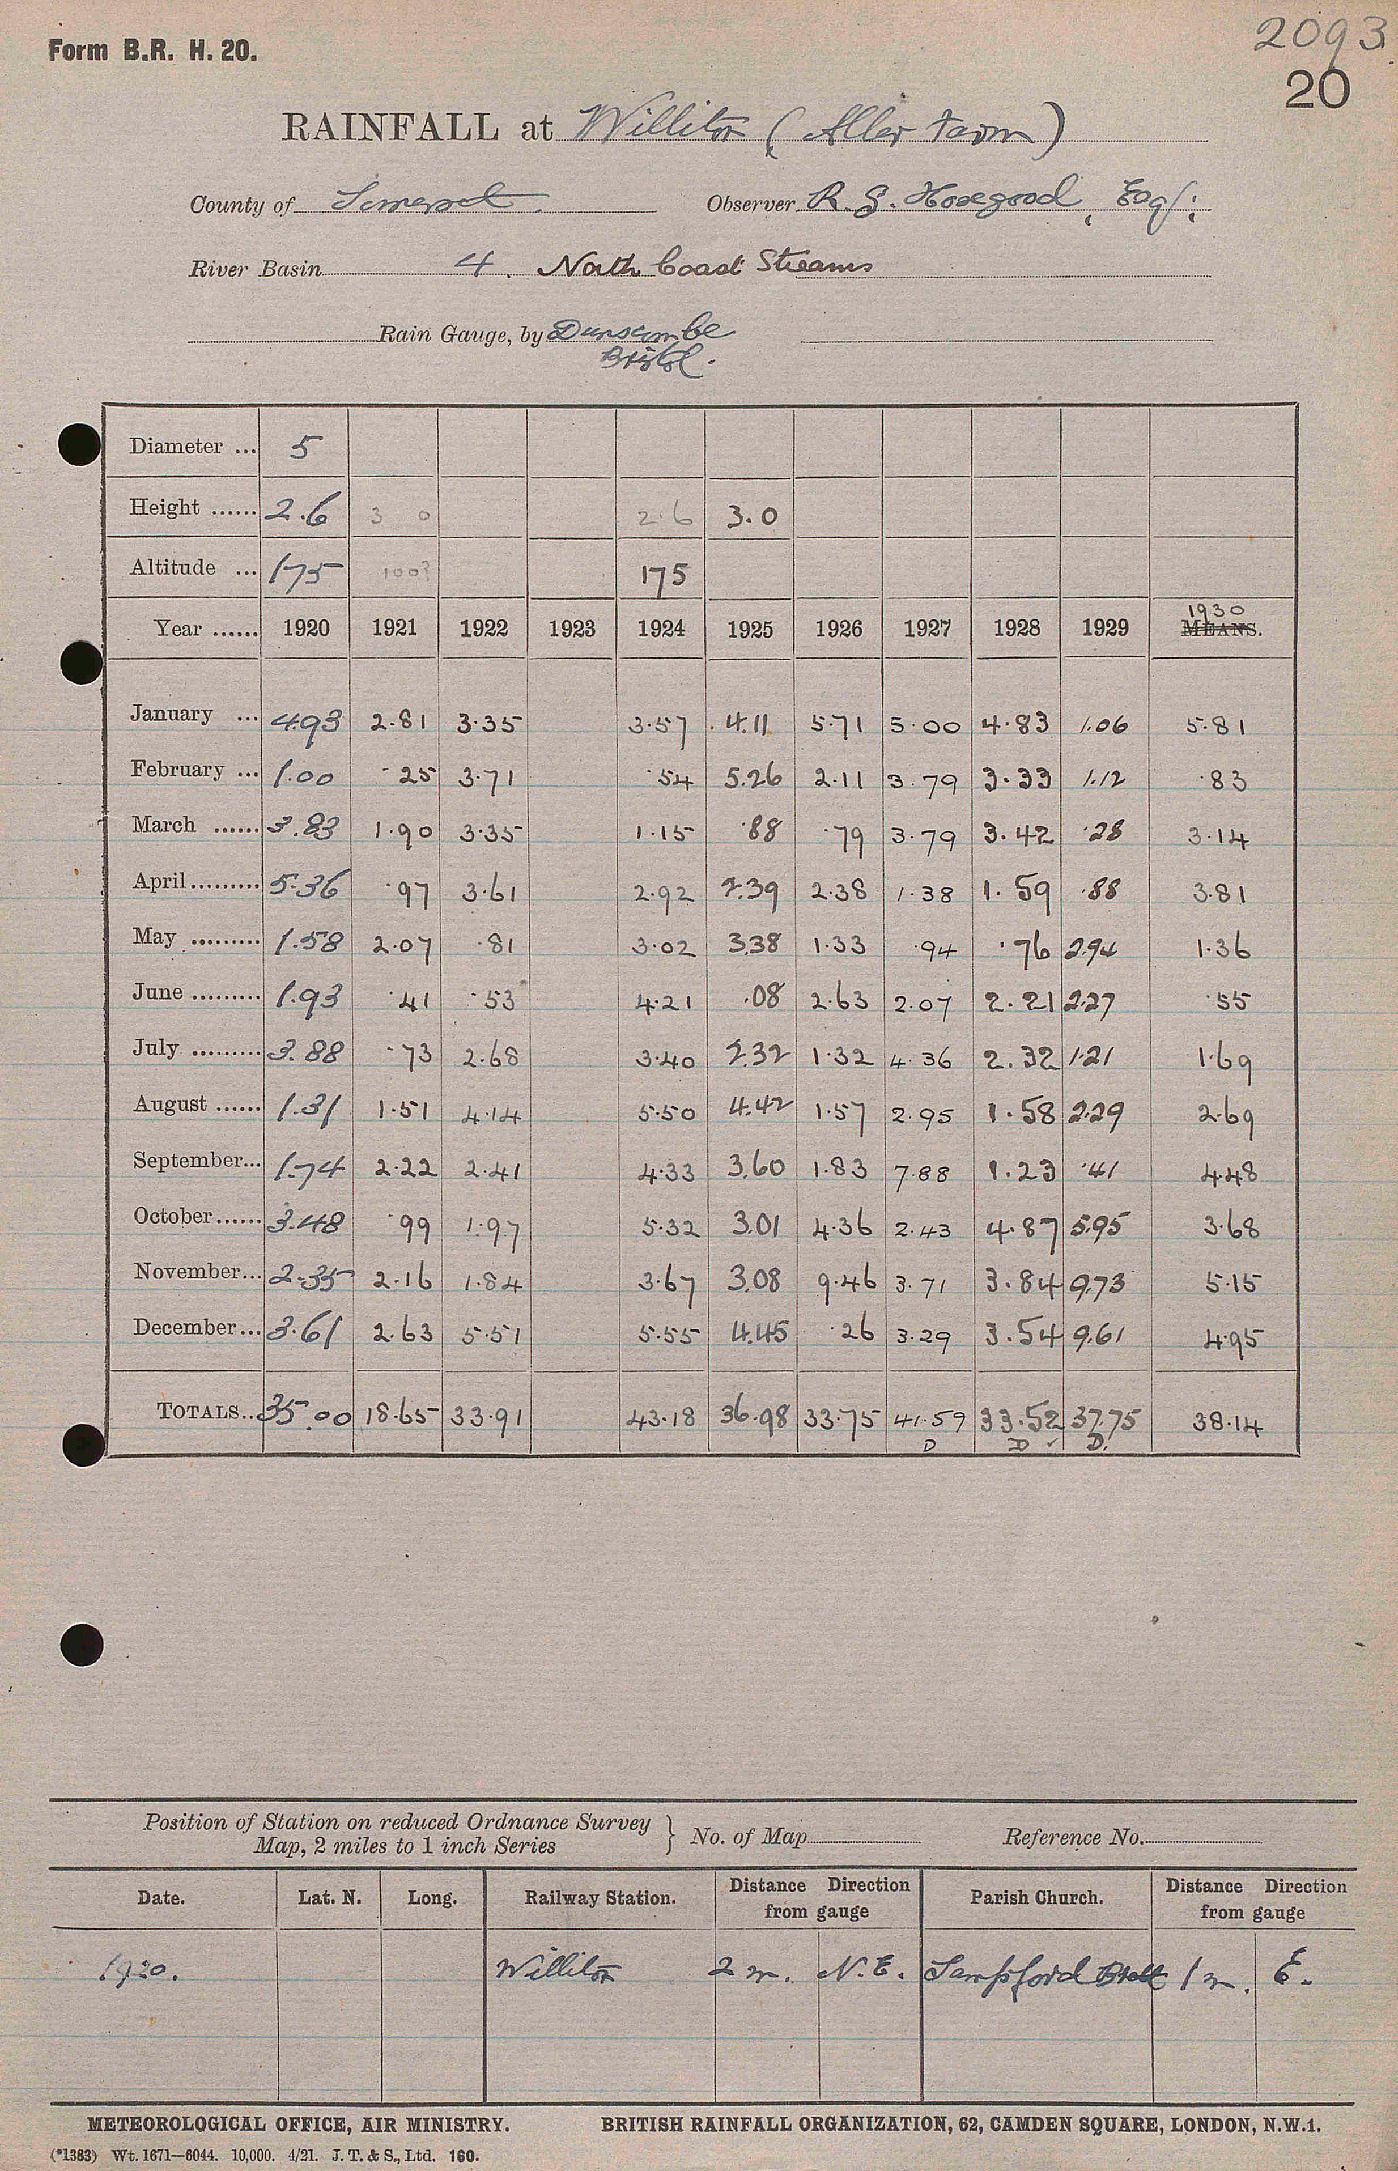 Form B.R. H. 20.
2093
20
RAINFALL at Williton (Aller Farm)
County of Somerset Observer R. G. Hosegood, Esq;
River Basin 4. North Coast Streams
Rain Gauge, by Dunscombe
Bristol.
Diameter ... 5
Height ...... 2.6 3 0 2.6 3.0
Altitude ... 175 100? 175
1930
Year ...... 1920 1921 1922 1923 1924 1925 1926 1927 1928 1929 MEANS.
January ... 4.93 2.81 3.35 3.57 4.11 5.71 5.00 4.83 1.06 5.81
February ... 1.00 .25 3.71 .54 5.26 2.11 3.79 3.33 1.12 .83
March ...... 3.83 1.90 3.35 1.15 .88 .79 3.79 3.42 .28 3.14
April ......... 5.36 .97 3.61 2.92 2.39 2.38 1.38 1.59 .88 3.81
May ......... 1.58 2.07 .81 3.02 3.38 1.33 .94 .76 2.94 1.36
June ......... 1.93 .41 .53 4.21 .08 2.63 2.07 2.21 2.27 .55
July ......... 3.88 .73 2.68 3.40 2.32 1.32 4.36 2.32 1.21 1.69
August ...... 1.31 1.51 4.14 5.50 4.42 1.57 2.95 1.58 2.29 2.69
September... 1.74 2.22 2.41 4.33 3.60 1.83 7.88 1.23 .41 4.48
October ...... 3.48 .99 1.97 5.32 3.01 4.36 2.43 4.87 5.95 3.68
November... 2.35 2.16 1.84 3.67 3.08 9.46 3.71 3.84 9.73 5.15
December... 3.61 2.63 5.51 5.55 4.45 .26 3.29 3.54 9.61 4.95
TOTALS.. 35.00 18.65 33.91 43.18 36.98 33.75 41.59 33.52 37.75 38.14
D D ✓ D.
Position of Station on reduced Ordnance Survey
Map, 2 miles to 1 inch Series } No. of Map Reference No.
Date. Lat. N. Long. Railway Station. Distance Direction from gauge Parish Church. Distance Direction from gauge
1920. Williton 2 m. N.E. Sampford Brett 1 m. E.
METEOROLOGICAL OFFICE, AIR MINISTRY. BRITISH RAINFALL ORGANIZATION, 62, CAMDEN SQUARE, LONDON, N.W.1.
(*1383) Wt. 1671—6044. 10,000. 4/21. J. T. & S., Ltd. 160.